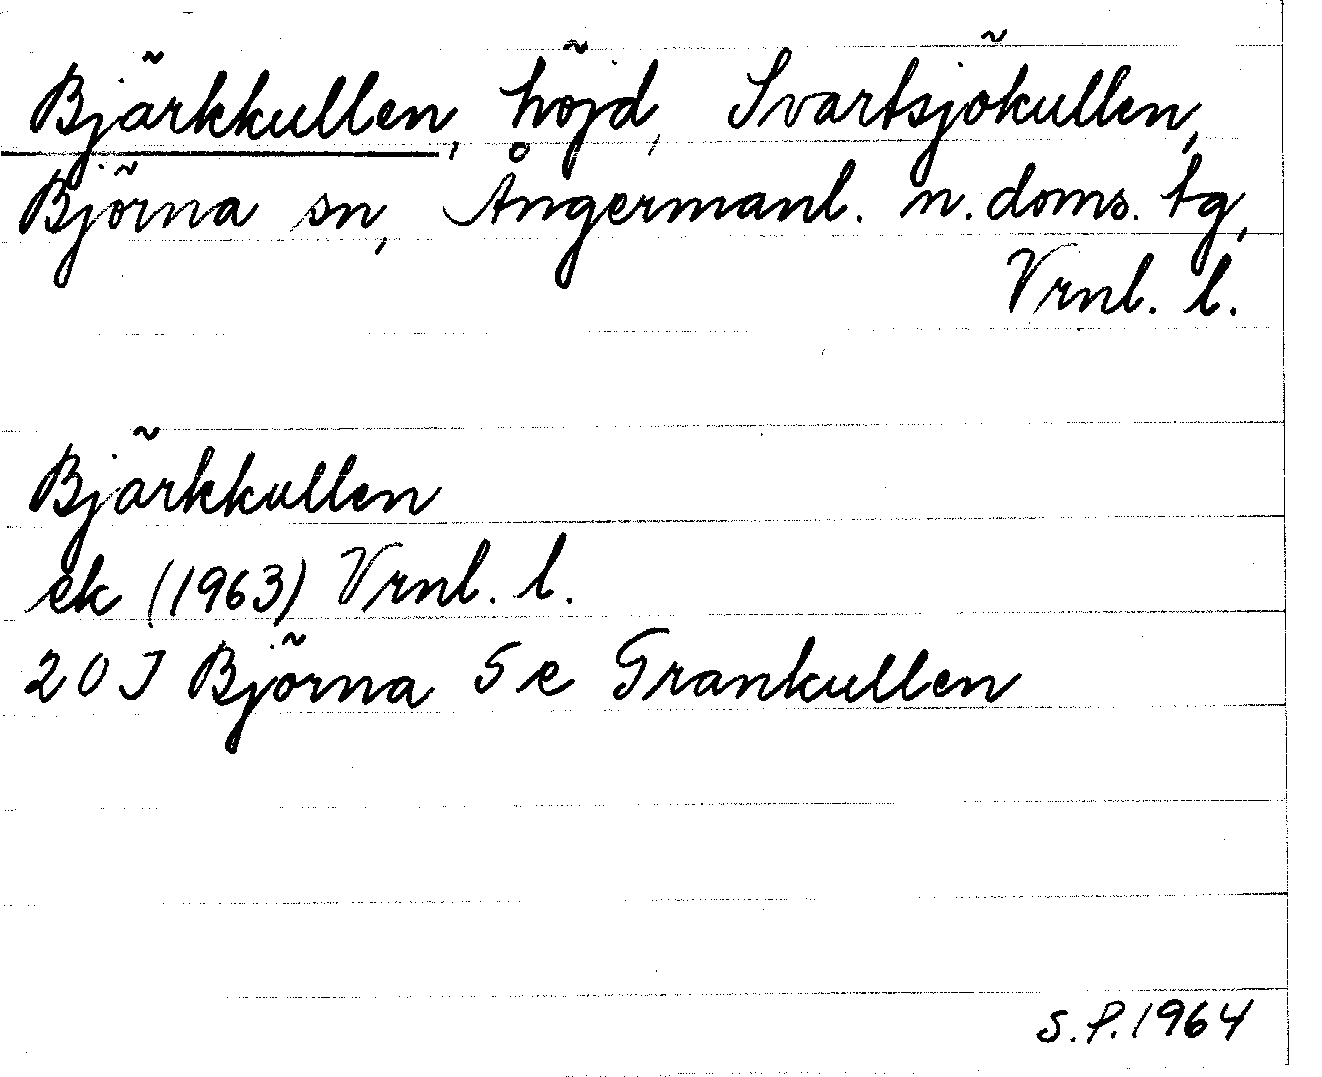 Björkkullen, höjd, Svartsjökullen,
Björna sn, Ångermanl. n. doms. tg,
Vrnl. l.
Björkkullen
ek (1963) Vrnl. l.
20 J Björna 5 e Grankullen
S.P. 1964